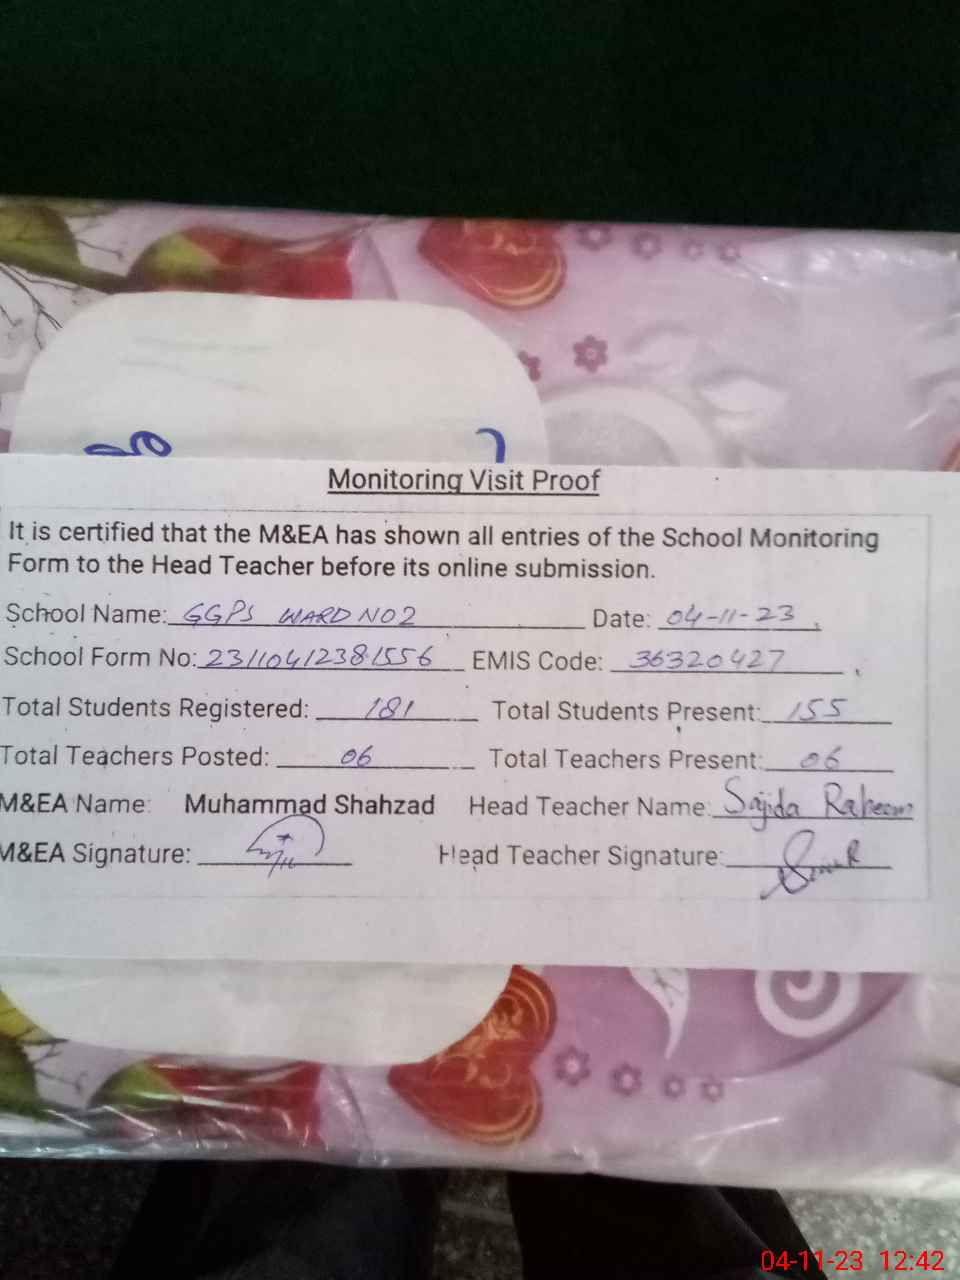 Monitoring Visit Proof
It is certified that the M&EA has shown all entries of the School Monitoring
Form to the Head Teacher before its online submission.
School Name: GGPS WARD NO 2 Date: 04-11-23
School Form No: 23110412381556 EMIS Code: 36320427
Total Students Registered: 181 Total Students Present: 155
Total Teachers Posted: 06 Total Teachers Present: 06
M&EA Name: Muhammad Shahzad Head Teacher Name: Sajida Raheem
M&EA Signature: Head Teacher Signature:
04-11-23 12:42